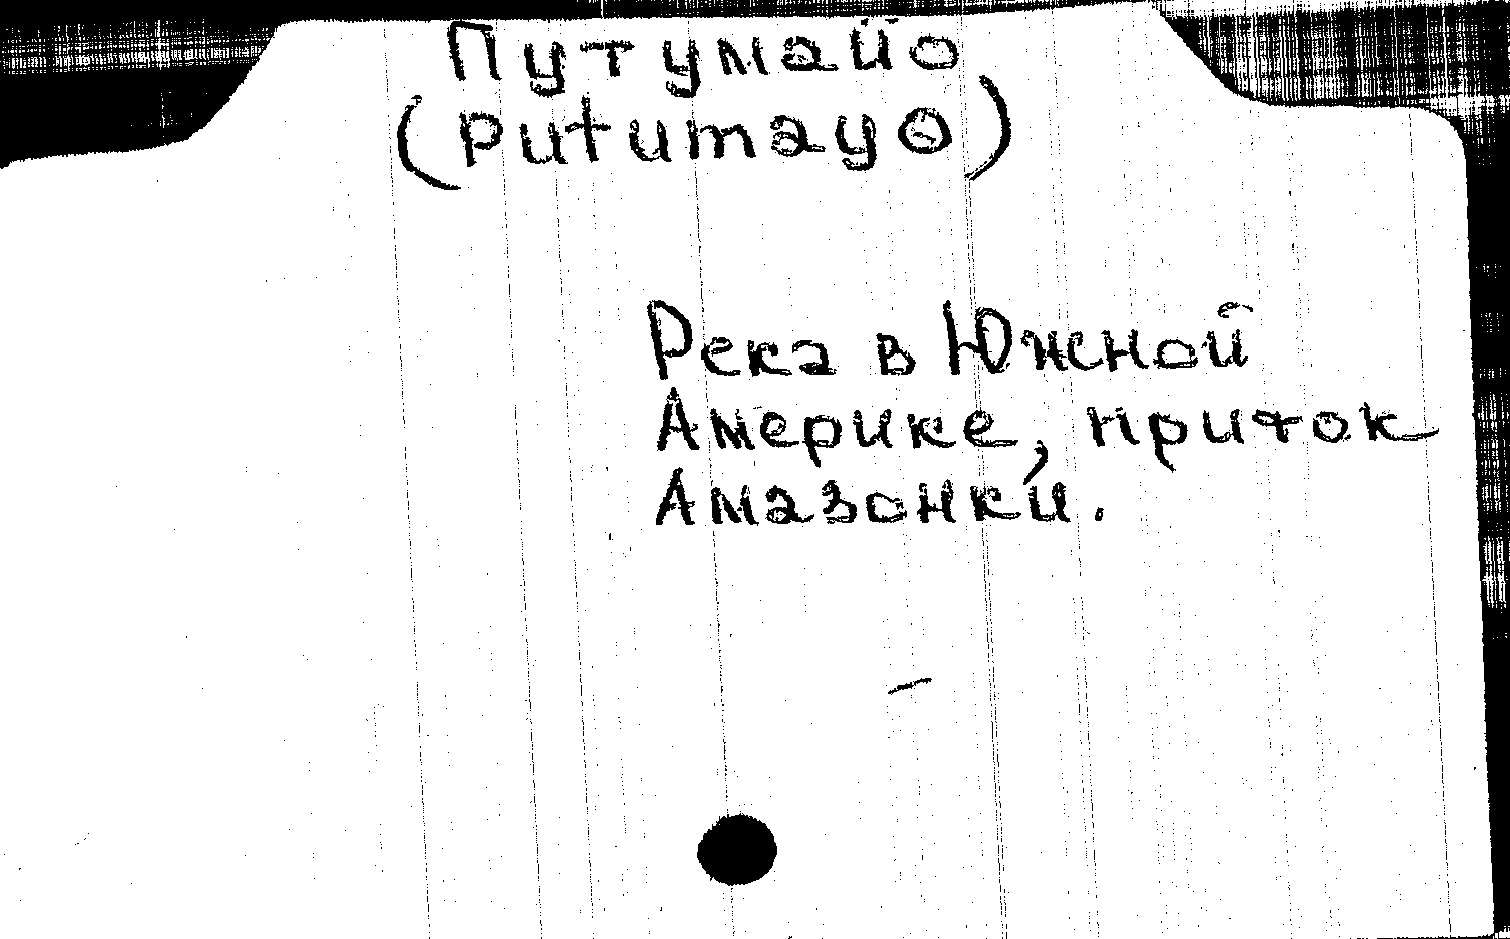 Путумайо
(Putumayo)
Река в Южной
Америке, приток
Амазонки.